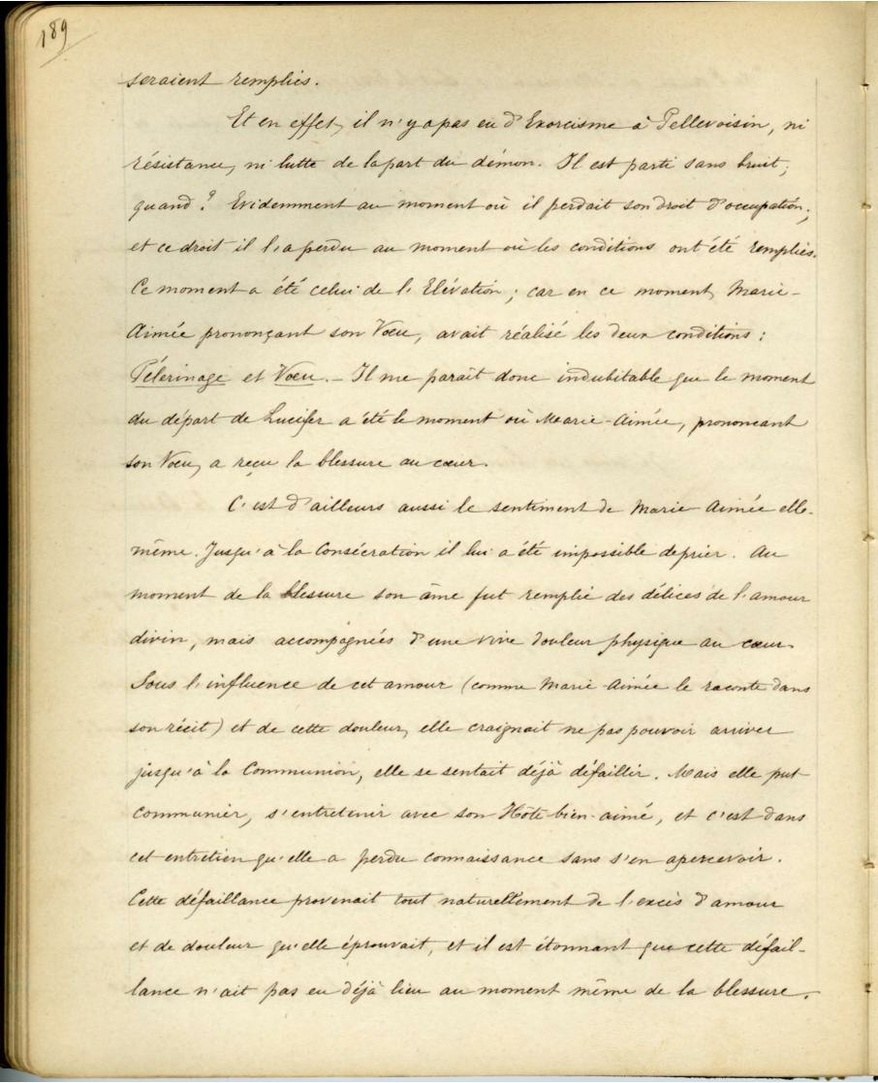 189
seraient remplies.
Et en effet, il n'y a pas eu d'Exorcisme à Pellevoisin, ni
résistance, ni lutte de la part du démon. Il est parti sans bruit;
quand? Evidemment au moment où il perdait son droit d'occupation;
et ce droit il l'a perdu au moment où les conditions ont été remplies.
Ce moment a été celui de l'Elévation; car en ce moment, Marie-
Aimée prononçant son Vœu, avait réalisé les deux conditions:
Pélerinage et Vœu. - Il me paraît donc indubitable que le moment
du départ de Lucifer a été le moment où Marie-Aimée, prononcant
son Vœu, a reçu la blessure au cœur.
C'est d'ailleurs aussi le sentiment de Marie Aimée elle-
même. Jusqu'à la Consécration il lui a été impossible de prier. Au
moment de la blessure son âme fut remplie des délices de l'amour
divin, mais accompagnées d'une vive douleur physique au cœur.
Sous l'influence de cet amour (comme Marie-Aimée le raconte dans
son récit) et de cette douleur, elle craignait ne pas pouvoir arriver
jusqu'à la Communion, elle se sentait déjà défaillir. Mais elle put
communier, s'entretenir avec son Hôte bien-aimé, et c'est dans
cet entretien qu'elle a perdu connaissance sans s'en apercevoir.
Cette défaillance provenait tout naturellement de l'excès d'amour
et de douleur qu'elle éprouvait, et il est étonnant que cette défail-
lance n'ait pas eu déjà lieu au moment même de la blessure.